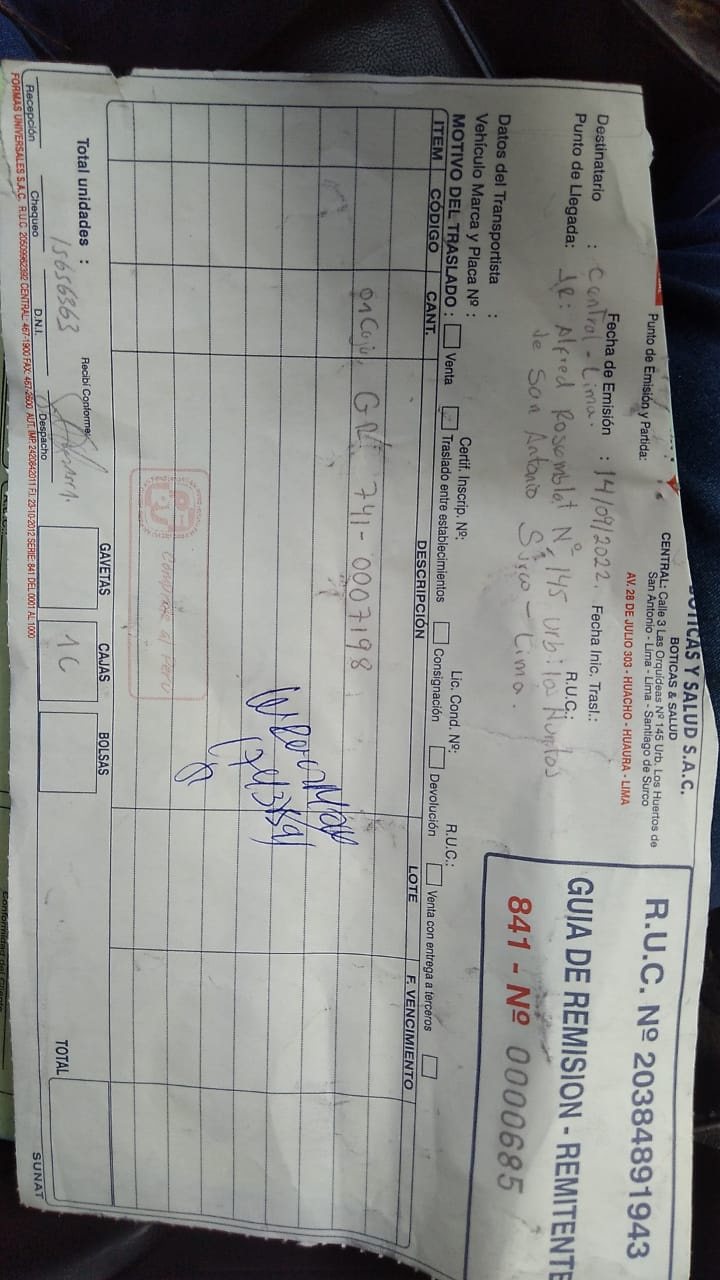 BOTICAS Y SALUD S.A.C.
BOTICAS & SALUD
CENTRAL: Calle 3 Las Orquídeas Nº 145 Urb. Los Huertos de
San Antonio - Lima - Lima - Santiago de Surco
AV. 28 DE JULIO 303 - HUACHO - HUAURA - LIMA
R.U.C. Nº 20384891943
GUIA DE REMISION - REMITENTE
841 - Nº 0000685
Punto de Emisión y Partida:
Fecha de Emisión : 14/09/2022. Fecha Inic. Trasl.:
Destinatario : Central - Lima. R.U.C.:
Punto de Llegada: Jr: Alfred Rosemblat Nº 145 urb: la Huertos
de San Antonio Surco - Lima.
Datos del Transportista :
Vehículo Marca y Placa Nº : Certif. Inscrip. Nº: Lic. Cond. Nº: R.U.C.:
MOTIVO DEL TRASLADO : Venta Traslado entre establecimientos Consignación Devolución Venta con entrega a terceros
ITEM CÓDIGO CANT. DESCRIPCIÓN LOTE F. VENCIMIENTO
GR: 741-0007198
GAVETAS CAJAS BOLSAS TOTAL
1C
Total unidades : 15656363 Recibí Conforme:
Recepción Chequeo D.N.I. Despacho
SUNAT
FORMAS UNIVERSALES S.A.C. R.U.C. 20509962392 CENTRAL: 467-1900 FAX: 467-2600 AUT. IMP. 2420842011 F.I. 23-10-2012 SERIE: 841 DEL 0001 AL 1000